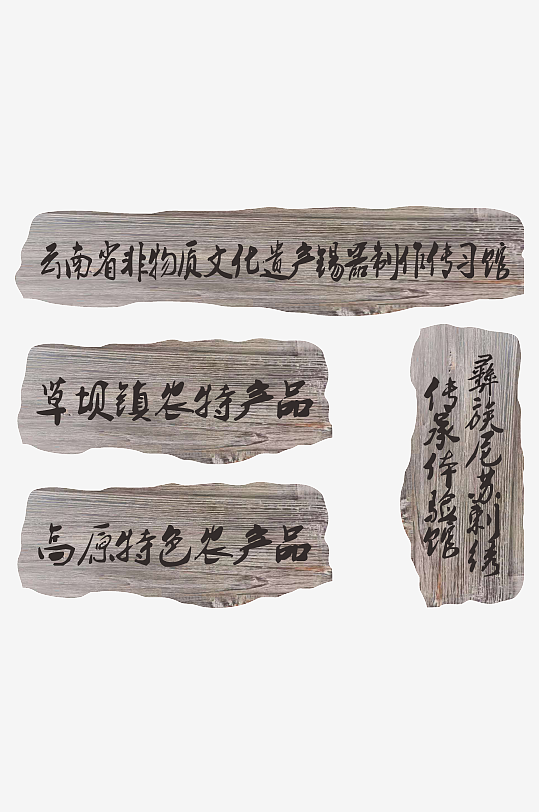 云南省非物质文化遗产锡器制作传习馆
草坝镇农特产品
高原特色农产品
彝族尼苏刺绣
传承体验馆